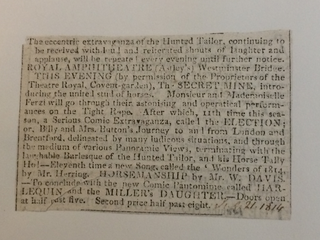 The eccentric extravaganza of the Hunted Tailor, continuing to
be received with loud and reiterated shouts of laughter and
applause, will be repeated every evening until further notice.
ROYAL AMPHITHEATRE (Astley's) Westminster Bridge.
THIS EVENING (by permission of the Proprietors of the
Theatre Royal, Covent-garden), The SECRET MINE, intro-
ducing the unrivalled stud of horses. Monsieur and Mademoiselle
Ferzi will go through their astonishing and operatical perform-
ances on the Tight Rope. After which, 11th time this sea-
son, a Serious Comic Extravaganza, called the ELECTION;
or, Billy and Mrs. Button's Journey to and from London and
Brentford, delineated by many ludicrous situations, and through
the medium of various Panoramic Views, terminating with the
laughable Burlesque of the Hunted Tailor, and his Horse Tally
Ho!—Eleventh time a new Song, called the Wonders of 1814,
by Mr. Herring. HORSEMANSHIP by Mr. W. DAVIS.
—To conclude with the new Comic Pantomime called HAR-
LEQUIN and the MILLER's DAUGHTER.—Doors open
at half past five. Second price half past eight.
21. 1814